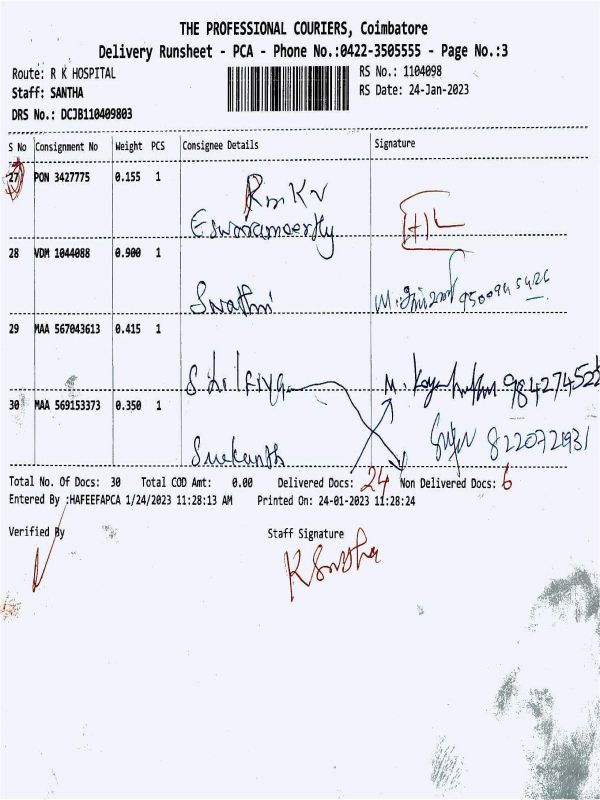 THE PROFESSIONAL COURIERS, Coimbatore
Delivery Runsheet - PCA - Phone No.:0422-3505555 - Page No.:3
Route: R K HOSPITAL
RS No.: 1104098
Staff: SANTHA
RS Date: 24-Jan-2023
DRS No.: DCJB110409803
S No Consignment No Weight PCS Consignee Details Signature
27 PON 3427775 0.155 1
RmKV
Eswaramoorthy
28 VDM 1044088 0.900 1
Swathi
29 MAA 567043613 0.415 1
30 MAA 569153373 0.350 1
8220721931
Srekanth
Total No. Of Docs: 30 Total COD Amt: 0.00 Delivered Docs: 24 Non Delivered Docs: 6
Entered By :HAFEEFAPCA 1/24/2023 11:28:13 AM Printed On: 24-01-2023 11:28:24
Verified By Staff Signature
K Santha